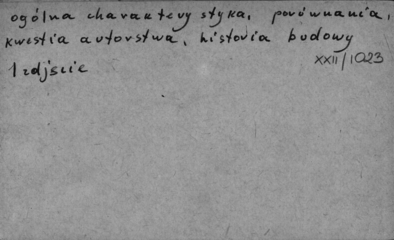 ogólna charakterystyka, porównania,
kwestia autorstwa, historia budowy
1 zdjęcie
XXII/1023